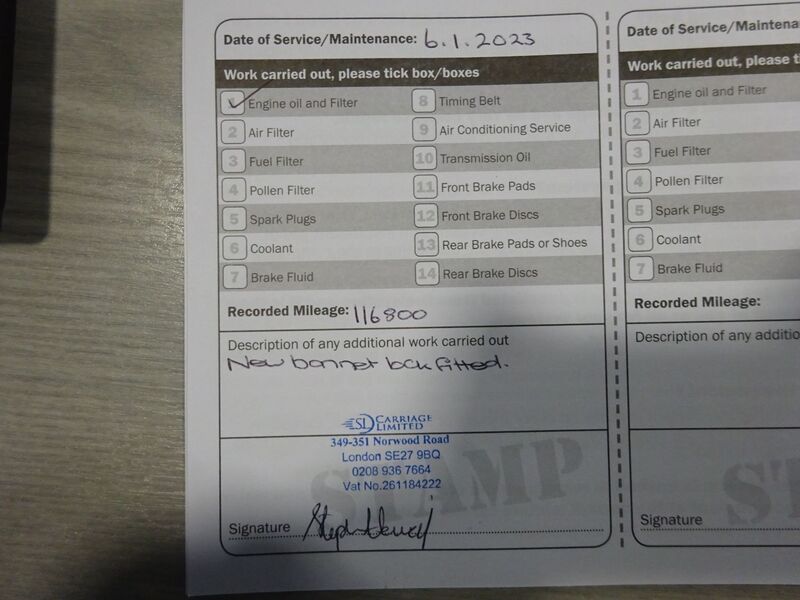 Date of Service/Maintenance: 6.1.2023
Work carried out, please tick box/boxes
Engine oil and Filter
2 Air Filter
3 Fuel Filter
4 Pollen Filter
5 Spark Plugs
6 Coolant
7 Brake Fluid
8 Timing Belt
9 Air Conditioning Service
10 Transmission Oil
11 Front Brake Pads
12 Front Brake Discs
13 Rear Brake Pads or Shoes
14 Rear Brake Discs
Recorded Mileage: 116800
Description of any additional work carried out
New bonnet lock fitted.
SL CARRIAGE
LIMITED
349-351 Norwood Road
London SE27 9BQ
0208 936 7664
Vat No.261184222
STAMP
Signature
Date of Service/Maintena
Work carried out, please ti
1 Engine oil and Filter
2 Air Filter
3 Fuel Filter
4 Pollen Filter
5 Spark Plugs
6 Coolant
7 Brake Fluid
Recorded Mileage:
Description of any additio
ST
Signature